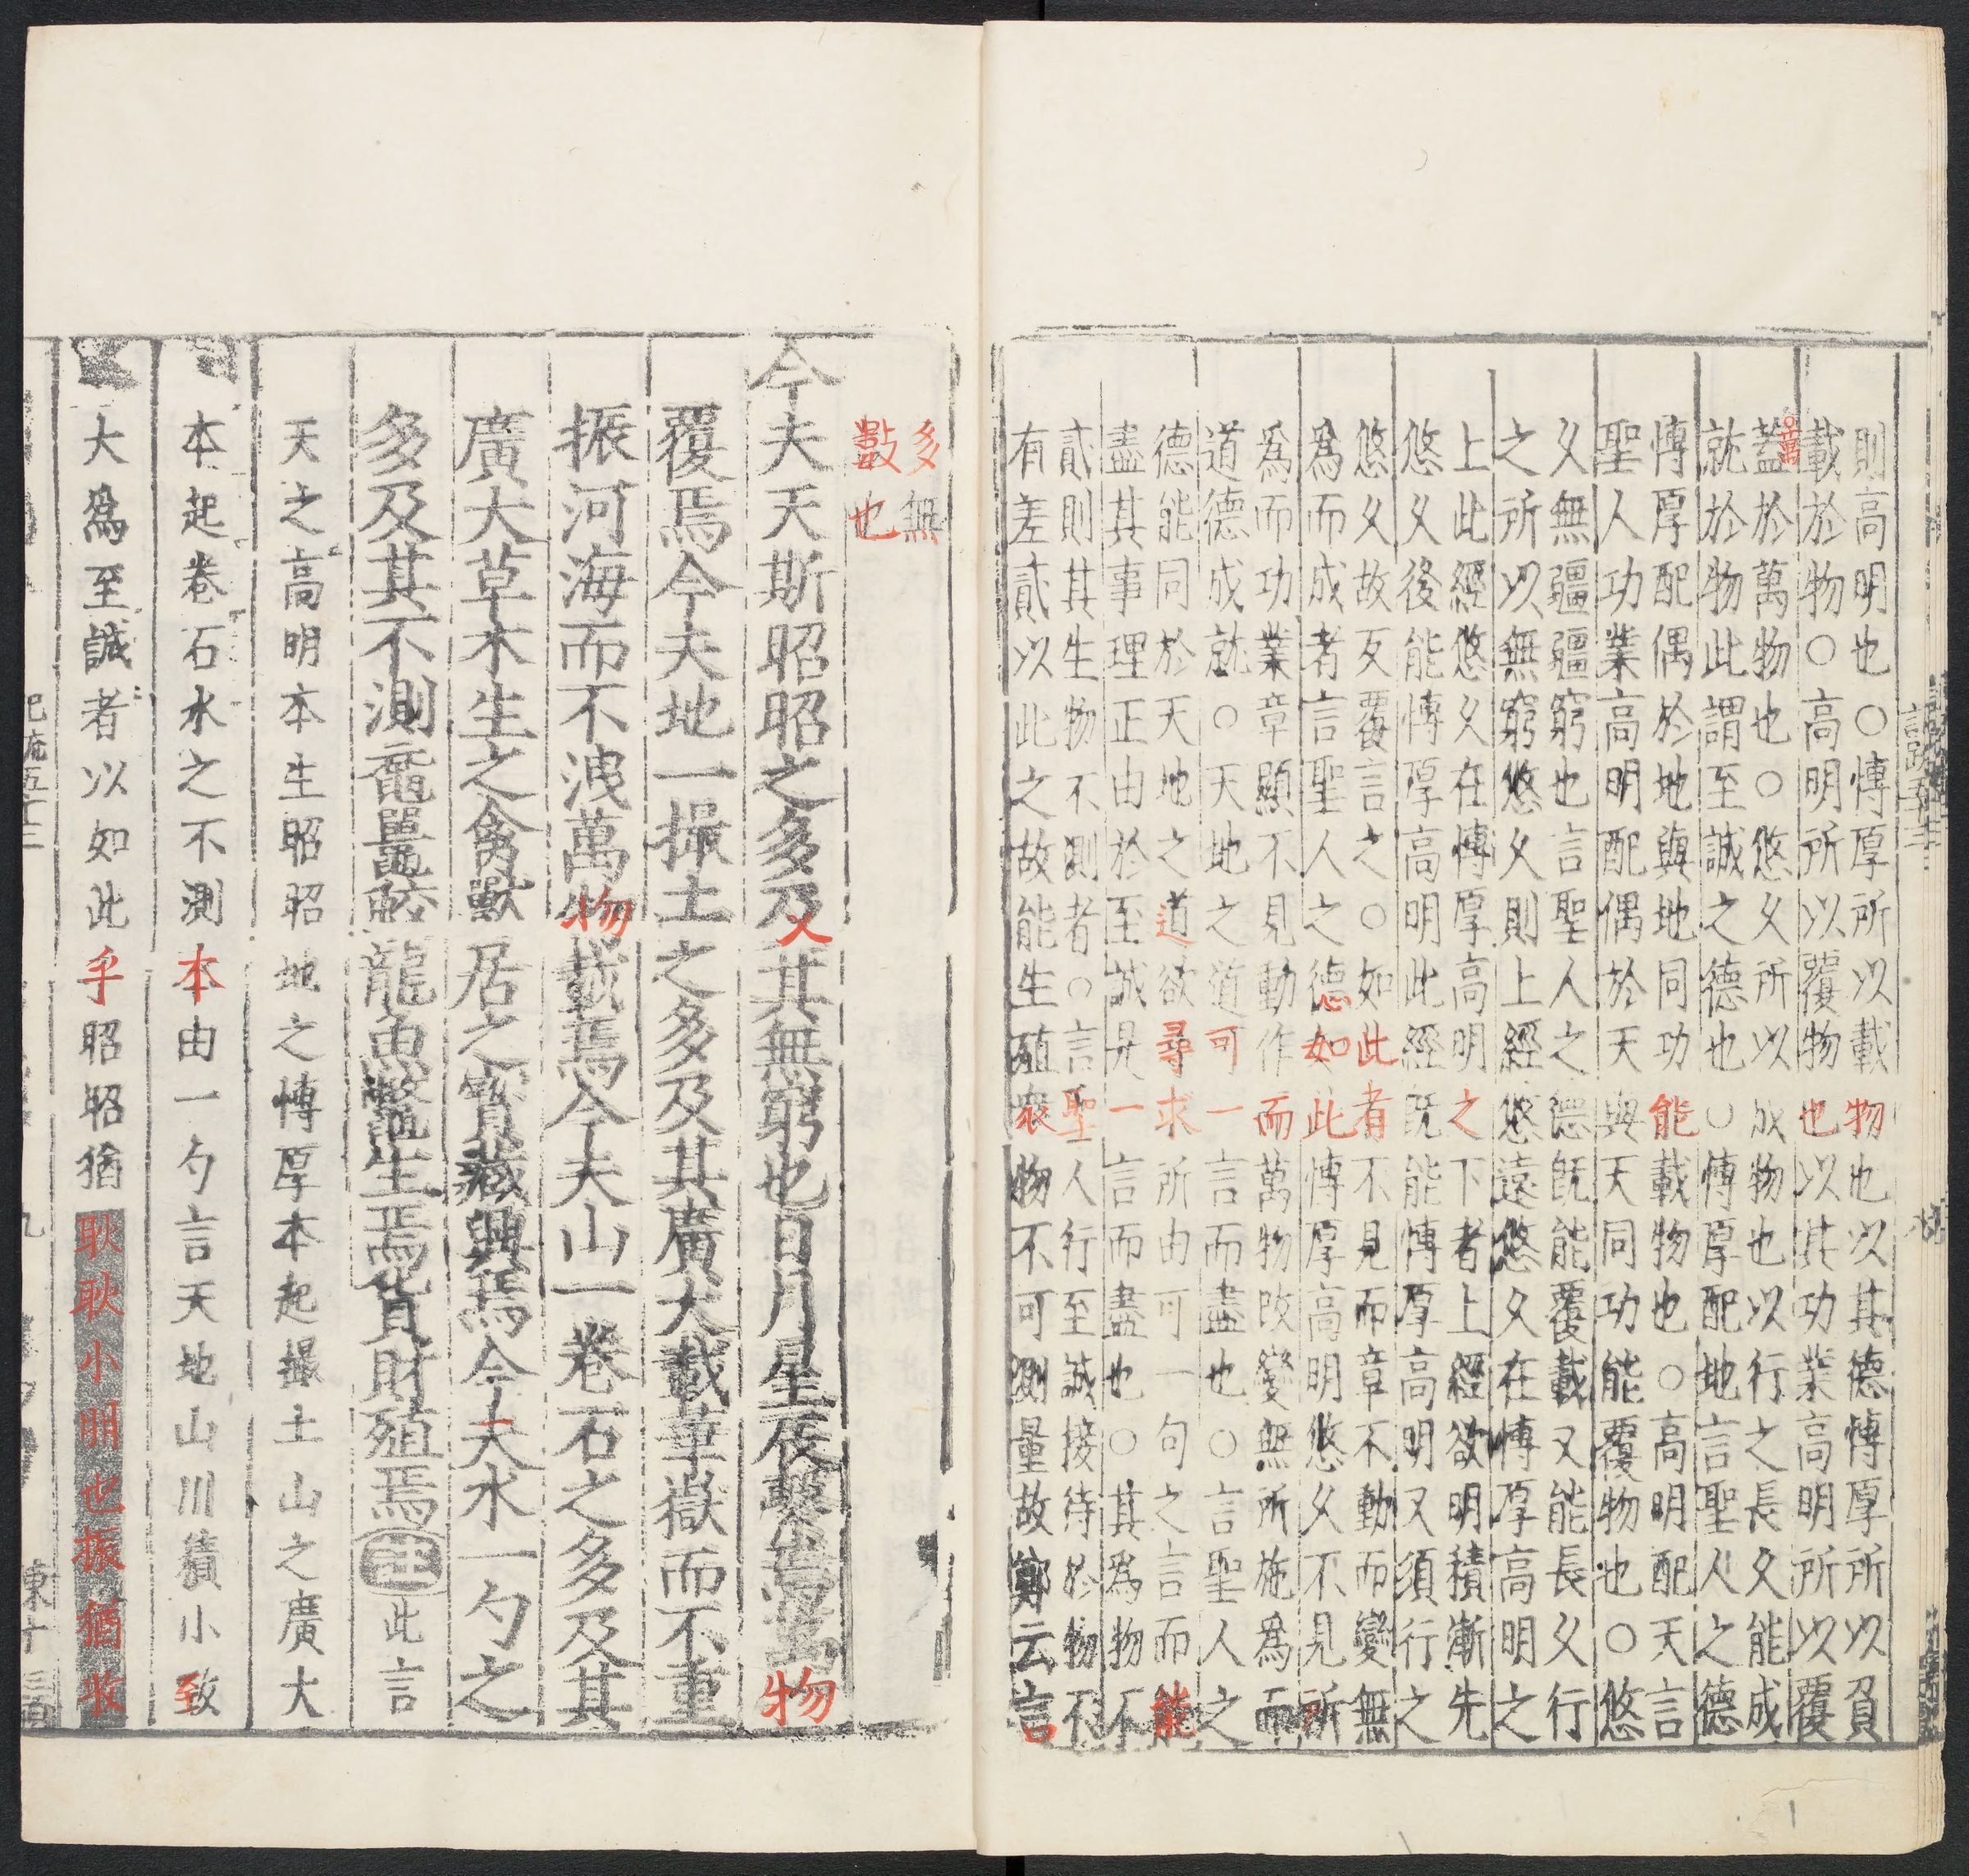 則高明也○愽厚所以載物也以其德愽厚所以負
載於物○高明所以覆物也以其功業高明所以覆
○萬
蓋於萬物也○悠乆所以成物也以行之長乆能成
就於物此謂至誠之德也○愽厚配地言聖人之德
愽厚配偶於地與地同功能載物也○高明配天言
聖人功業高明配偶於天與天同功能覆物也○悠
乆無疆疆窮也言聖人之德既能覆載又能長乆行
之所以無窮悠乆則上經悠遠悠乆在愽厚高明之
上此經悠乆在愽厚高明之下者上經欲明積漸先
悠乆後能愽厚高明此經既能愽厚高明又須行之
悠乆故反覆言之○如此者不見而章不動而變無
爲而成者言聖人之德如此愽厚高明悠乆不見所
爲而功業章顯不見動作而萬物改變無所施爲而
道德成就○天地之道可一言而盡也○言聖人之
德能同於天地之道欲尋求所由可一句之言而能
盡其事理正由於至誠是一言而盡也○其爲物不
貳則其生物不測者○言聖人行至誠接待於物不
有差貳以此之故能生殖衆物不可測量故鄭云言
多無
數也
今夫天斯昭昭之多及其無窮也日月星辰繫焉萬物
覆焉今夫地一撮土之多及其廣大載華嶽而不重
振河海而不洩萬物載焉今夫山一卷石之多及其
廣大草木生之禽獸居之寳藏興焉今夫水一勺之
多及其不測黿鼉鮫龍魚鼈生焉貨財殖焉注此言
天之高明本生昭昭地之愽厚本起撮土山之廣大
本起卷石水之不測本由一勺言天地山川積小致
大爲至誠者以如此乎昭昭猶耿耿小明也振猶收